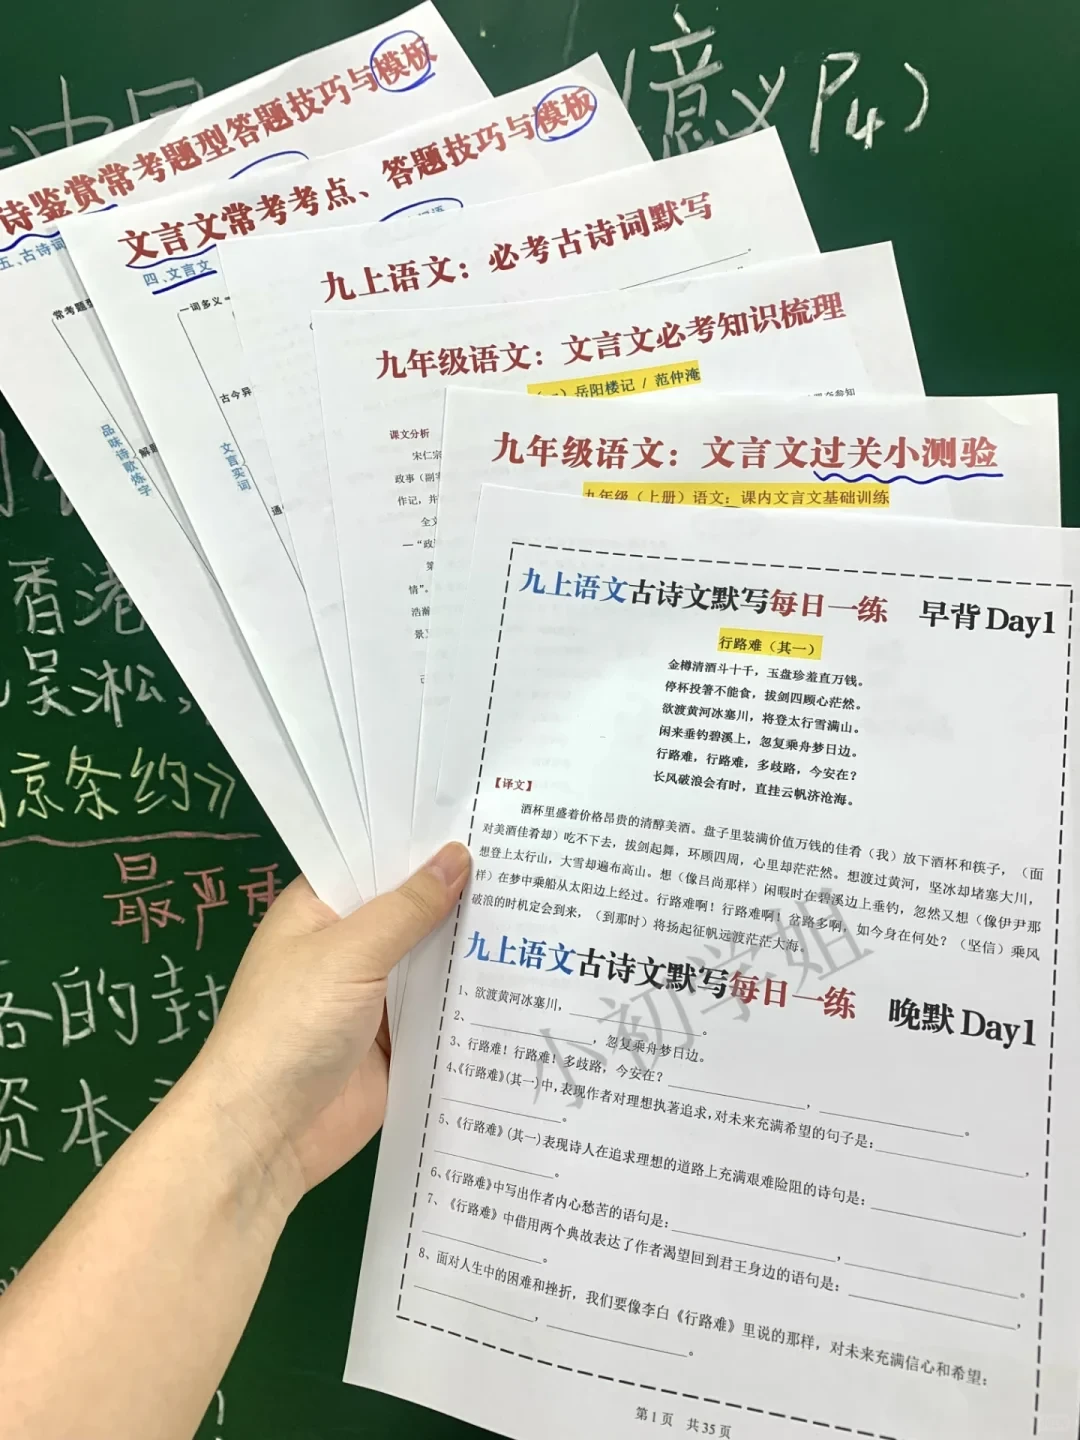 (意义P4)
诗鉴赏常考题型答题技巧与模板
五、古诗词
常考题型
品味诗歌炼字
文言文常考考点、答题技巧与模板
四、文言文
一词多义
古今异
文言实词
通
九上语文：必考古诗词默写
九年级语文：文言文必考知识梳理
岳阳楼记 / 范仲淹
课文分析
宋仁宗
政事（副宰
作记，并
全文
—“政
第
情”。
浩瀚
景
九年级语文：文言文过关小测验
九年级（上册）语文：课内文言文基础训练
九上语文古诗文默写每日一练 早背Day1
行路难（其一）
金樽清酒斗十千，玉盘珍羞直万钱。
停杯投箸不能食，拔剑四顾心茫然。
欲渡黄河冰塞川，将登太行雪满山。
闲来垂钓碧溪上，忽复乘舟梦日边。
行路难，行路难，多歧路，今安在？
长风破浪会有时，直挂云帆济沧海。
【译文】
酒杯里盛着价格昂贵的清醇美酒。盘子里装满价值万钱的佳肴（我）放下酒杯和筷子，（面
对美酒佳肴却）吃不下去，拔剑起舞，环顾四周，心里却茫茫然。想渡过黄河，坚冰却堵塞大川，
想登上太行山，大雪却遍布高山。想（像吕尚那样）闲暇时在碧溪边上垂钓，忽然又想（像伊尹那
样）在梦中乘船从太阳边上经过。行路难啊！行路难啊！岔路多啊，如今身在何处？（坚信）乘风
破浪的时机定会到来，（到那时）将扬起征帆远渡茫茫大海。
九上语文古诗文默写每日一练 晚默Day1
1、欲渡黄河冰塞川，____________。
2、____________，忽复乘舟梦日边。
3、行路难！行路难！多歧路，今安在？____________，____________。
4、《行路难》(其一)中，表现作者对理想执著追求，对未来充满希望的句子是：____________，
____________。
5、《行路难》(其一)表现诗人在追求理想的道路上充满艰难险阻的诗句是：____________，
____________。
6、《行路难》中写出作者内心愁苦的语句是：____________，____________。
7、《行路难》中借用两个典故表达了作者渴望回到君王身边的语句是：____________，
____________。
8、面对人生中的困难和挫折，我们要像李白《行路难》里说的那样，对未来充满信心和希望：
____________，____________。
第1页 共35页
小初学姐
香港
吴淞、
京条约》
最严重
的封
资本